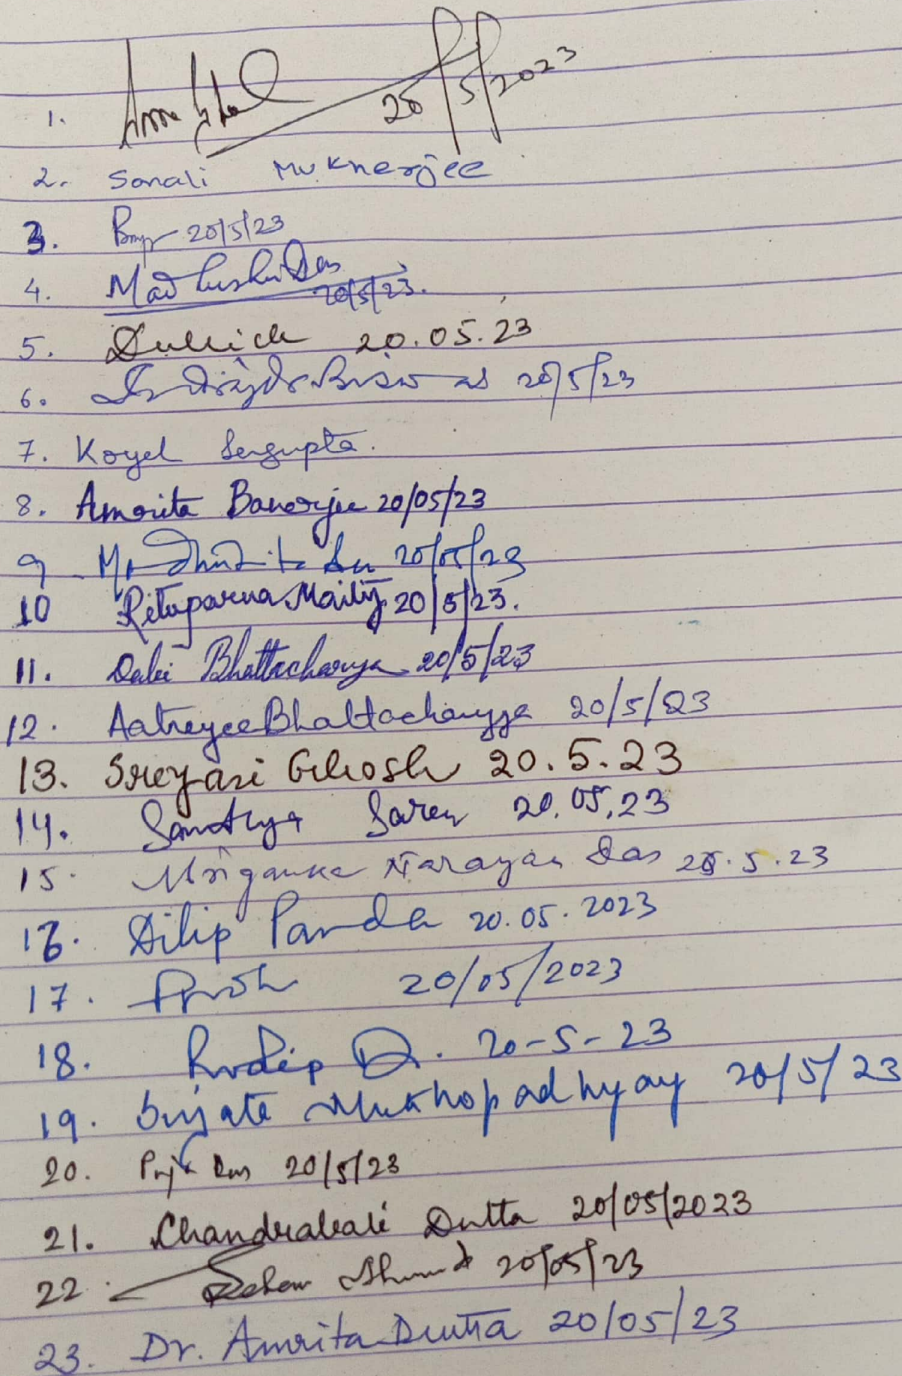 1. 20/5/2023
2. Sonali Mukherjee
3. 20/5/23
4. Das 20/5/23.
5. 20.05.23
6. Biswas 20/5/23
7. Koyel Sengupta.
8. Amrita Banerjee 20/05/23
9 20/05/23
10 Rituparna Maity 20/5/23.
11. Bhattacharya 20/5/23
12. Aatreyee Bhattacharyya 20/5/23
13. Sreyasi Ghosh 20.5.23
14. Saren 20.05.23
15. Mriganka Narayan Das 20.5.23
16. Dilip Panda 20.05.2023
17. 20/05/2023
18. 20-5-23
19. Sujata Mukhopadhyay 20/5/23
20. 20/5/23
21. Chandrabali Dutta 20/05/2023
22. 20/05/23
23. Dr. Amrita Dutta 20/05/23